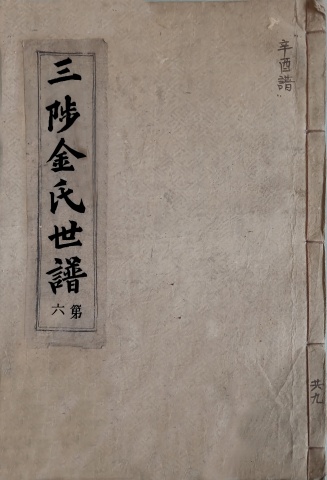 辛酉譜
三陟金氏世譜
第六
共九